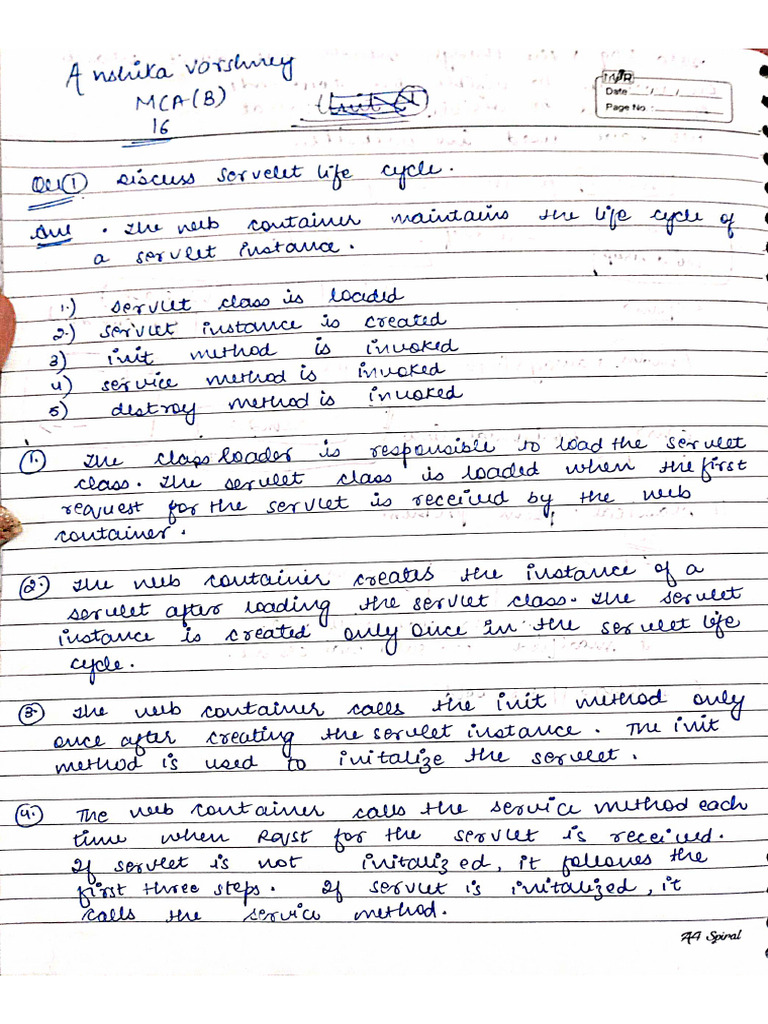 Anshika Varshney
MCA(B)
16
Unit 1
MJR
Date
Page No
Que① Discuss Servelet life cycle.
Ans . The web container maintains the life cycle of
a servlet instance.
1.) servlet class is loaded
2.) servlet instance is created
3) init method is invoked
4) service method is invoked
5) destroy method is invoked
①. The class loader is responsible to load the servlet
class. The servlet class is loaded when the first
request for the servlet is received by the web
container.
②. The web container creates the instance of a
servlet after loading the servlet class. The servlet
instance is created only once in the servlet life
cycle.
③. The web container calls the init method only
once after creating the servlet instance. The init
method is used to initalize the servlet.
④. The web container calls the service method each
time when Rqst for the servlet is received.
If servlet is not initalized, it follows the
first three steps. If servlet is initalized, it
calls the service method.
A4 Spiral